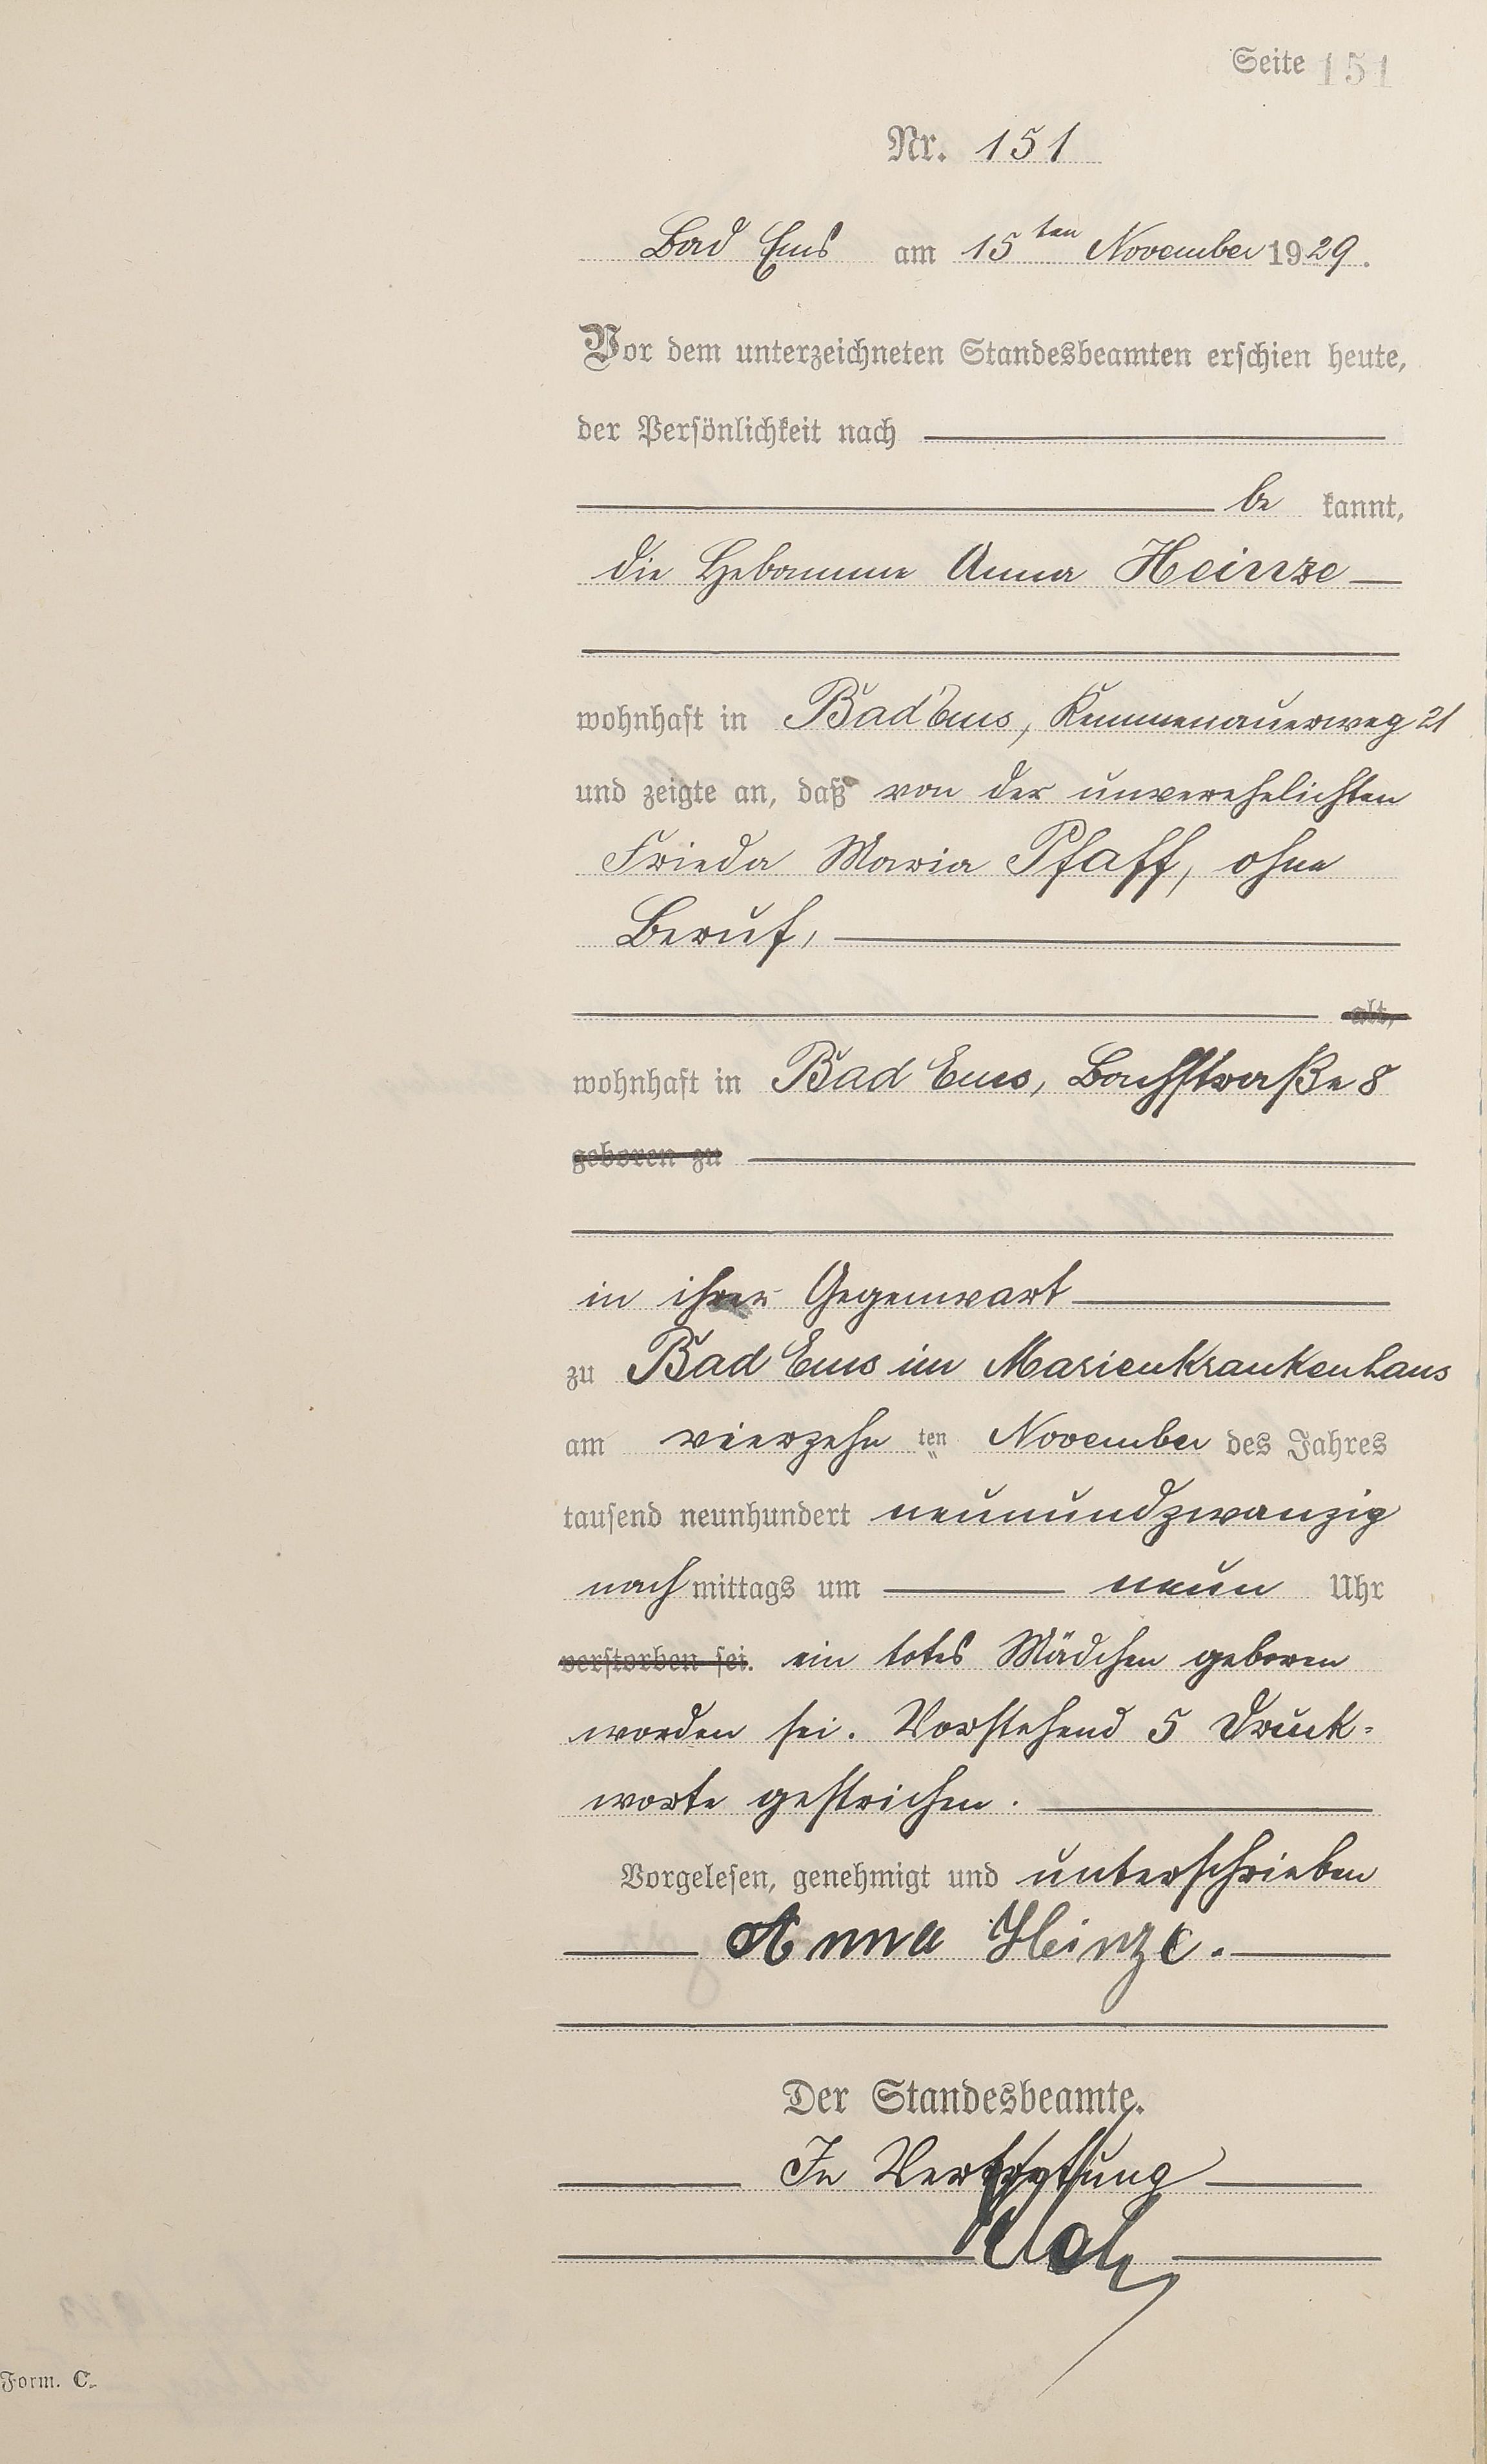 Seite 151
Nr. 151
Bad Ems am 15ten November 1929.
Vor dem unterzeichneten Standesbeamten erschien heute,
der Persönlichkeit nach
be kannt,
die Hebamme Anna Heinze
wohnhaft in Bad Ems, Kemmenauerweg 21
und zeigte an, daß von der unverehelichten
Frieda Maria Pfaff, ohne
Beruf,
alt,
wohnhaft in Bad Ems, Bachstraße 8
geboren zu
in ihrer Gegenwart
zu Bad Ems im Marienkrankenhaus
am vierzehn ten November des Jahres
tausend neunhundert neunundzwanzig
nachmittags um neun Uhr
verstorben sei. ein totes Mädchen geboren
worden sei. Vorstehend 5 Druck-
worte gestrichen.
Vorgelesen, genehmigt und unterschrieben
Anna Heinze.
Der Standesbeamte.
In Vertretung
Form. C.